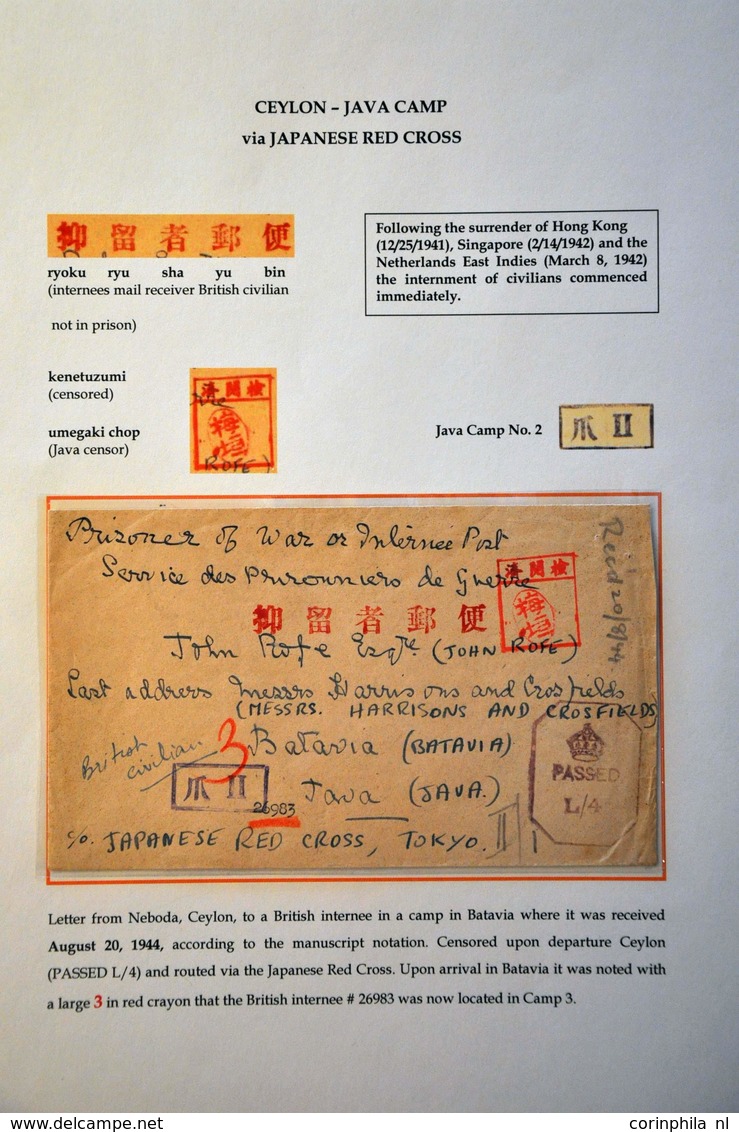 CEYLON – JAVA CAMP
via JAPANESE RED CROSS
抑留者郵便
ryoku ryu sha yu bin
(internees mail receiver British civilian
not in prison)
Following the surrender of Hong Kong
(12/25/1941), Singapore (2/14/1942) and the
Netherlands East Indies (March 8, 1942)
the internment of civilians commenced
immediately.
kenetuzumi
(censored)
umegaki chop
(Java censor)
済閲検
梅垣
ROFE)
Java Camp No. 2
爪 II
Prisoner of War or Internée Post
Service des Prisonniers de Guerre
済閲検
梅垣
抑留者郵便
John Rofe Esqre (JOHN ROFE)
Last address Messrs Harrisons and Crosfields
(MESSRS. HARRISONS AND CROSFIELDS)
British
civilian
3
Batavia (BATAVIA)
爪 II
26983
Java (JAVA.)
c/o. JAPANESE RED CROSS, TOKYO.
II
1
PASSED
L/4
Recd 20/8/44
Letter from Neboda, Ceylon, to a British internee in a camp in Batavia where it was received
August 20, 1944, according to the manuscript notation. Censored upon departure Ceylon
(PASSED L/4) and routed via the Japanese Red Cross. Upon arrival in Batavia it was noted with
a large 3 in red crayon that the British internee # 26983 was now located in Camp 3.
www.delcampe.net
corinphila nl